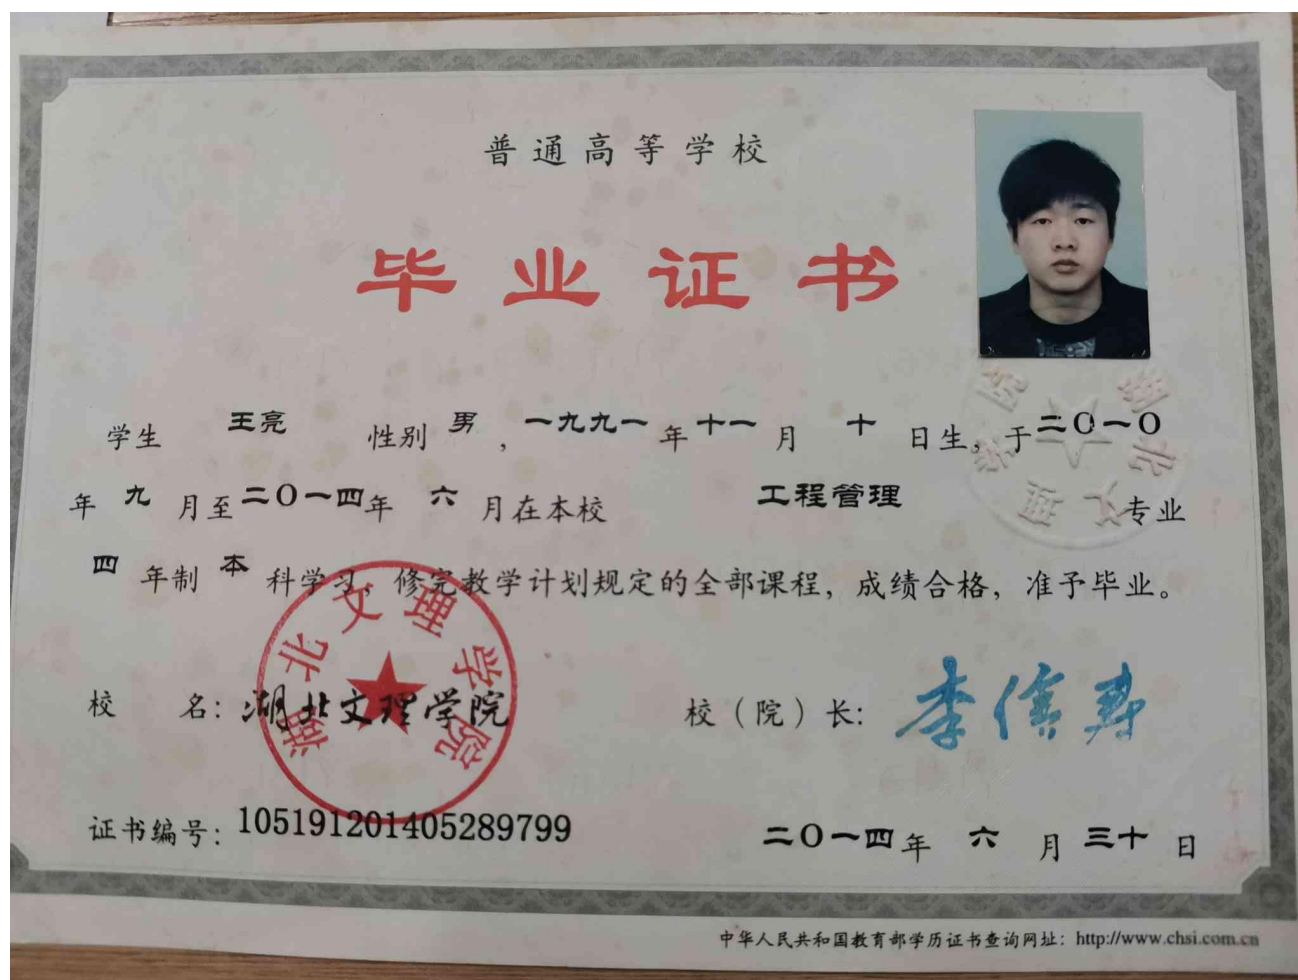 普通高等学校
毕业证书
学生 王亮 性别 男 ，一九九一 年 十一 月 十 日生，于 二〇一〇
年 九 月至 二〇一四 年 六 月在本校 工程管理 专业
四 年制 本 科学习，修完教学计划规定的全部课程，成绩合格，准予毕业。
校 名：湖北文理学院
校（院）长：李儒寿
湖北文理学院
湖北文理学院
证书编号：105191201405289799
二〇一四 年 六 月 三十 日
中华人民共和国教育部学历证书查询网址：http://www.chsi.com.cn